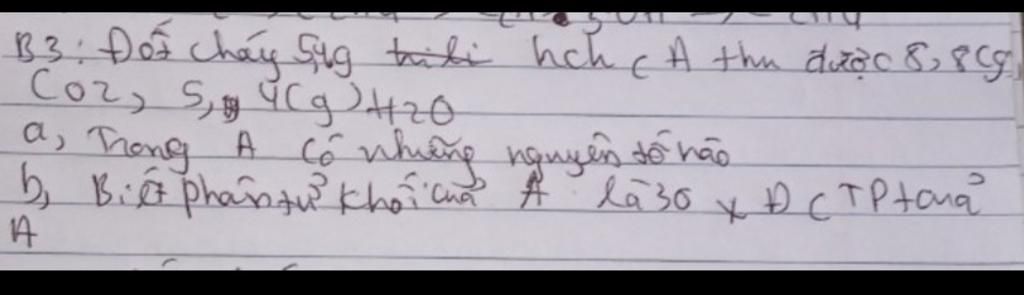 B3: Đốt cháy 5,4g hch c A thu được 8,8(g)
CO2, 5,4(g) H2O
a, Trong A có những nguyên tố nào
b, Biết phân tử khối của A là 30 x Đ CTPt của
A